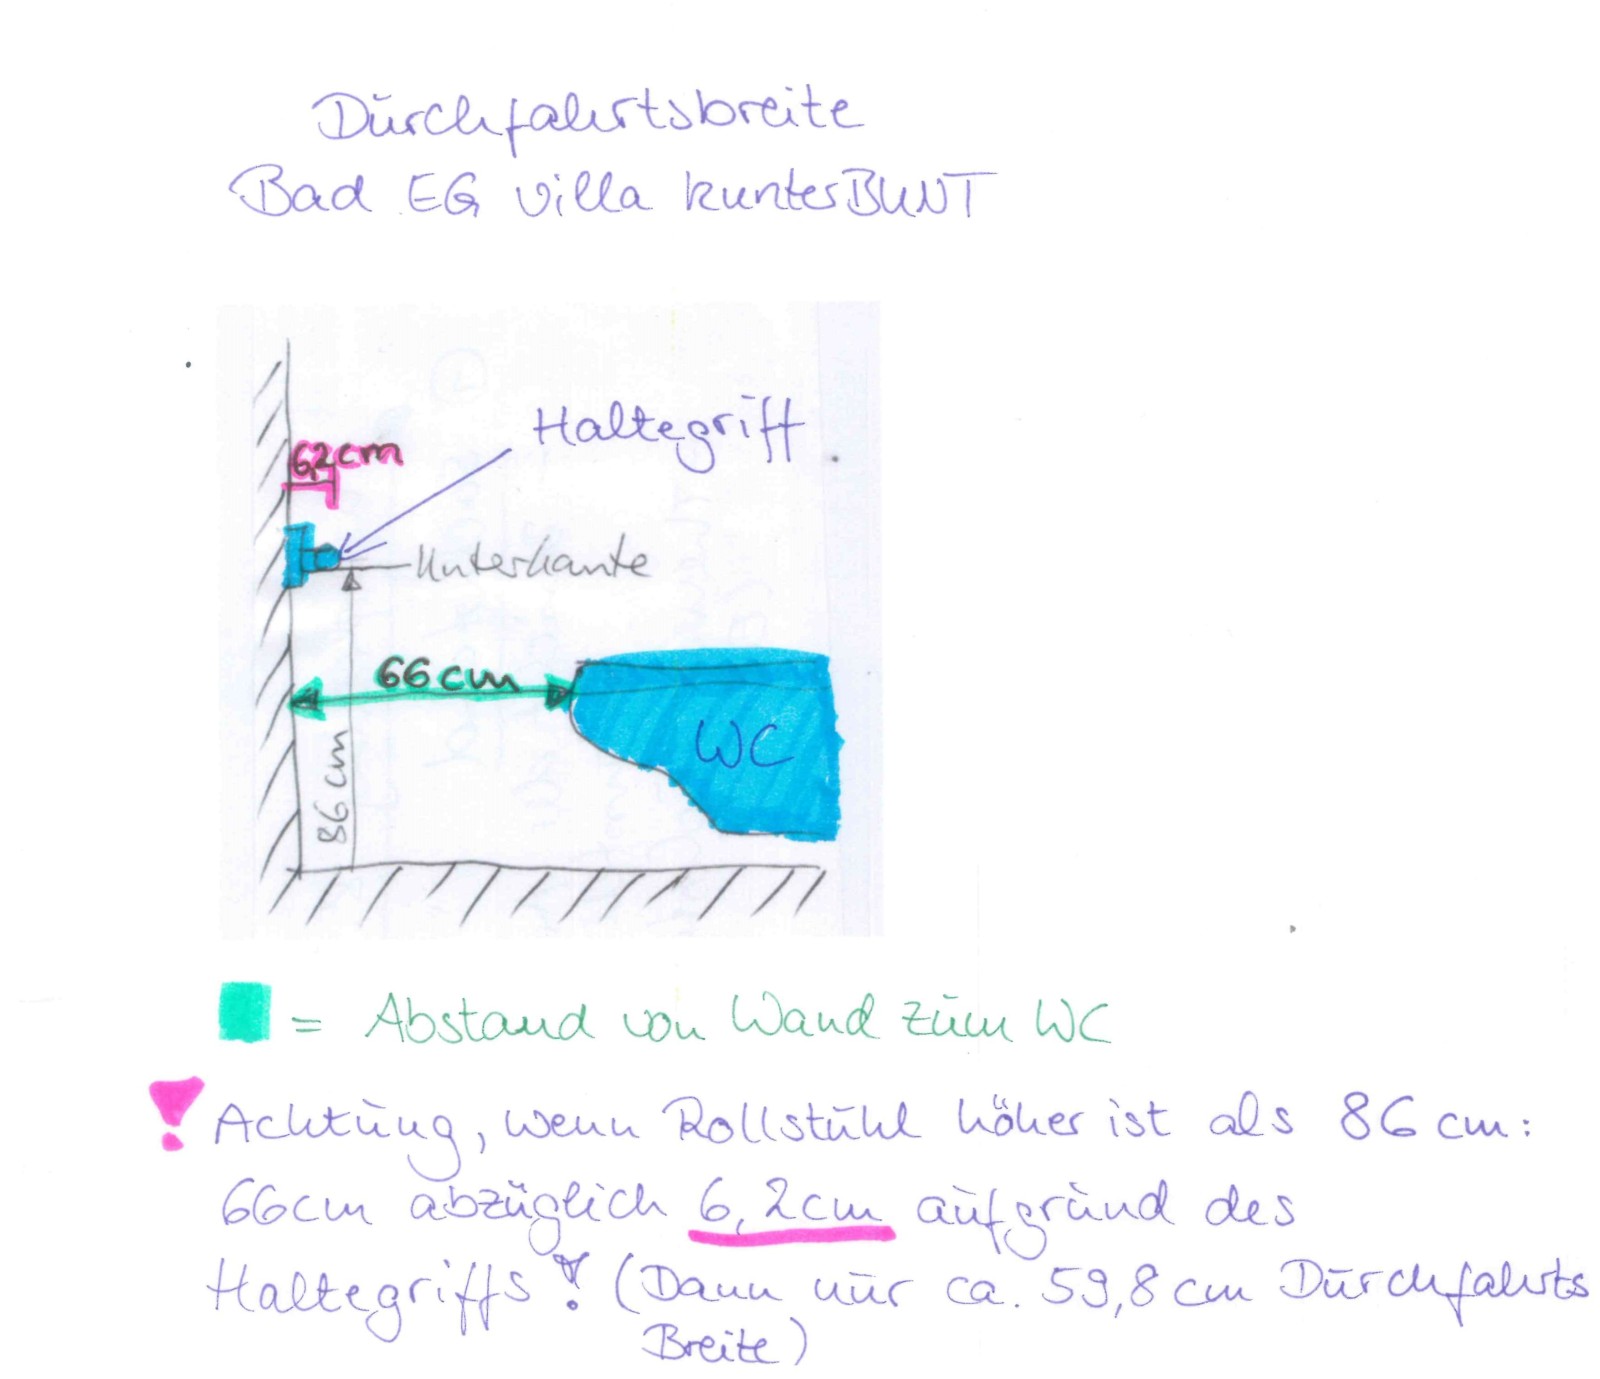 Durchfahrtsbreite
Bad EG Villa kunterBUNT
Haltegriff
6,2cm
Unterkante
66cm
WC
86 cm
= Abstand von Wand zum WC
! Achtung, wenn Rollstuhl höher ist als 86 cm:
66cm abzüglich 6,2cm aufgrund des
Haltegriffs! (Dann nur ca. 59,8 cm Durchfahrts
Breite)